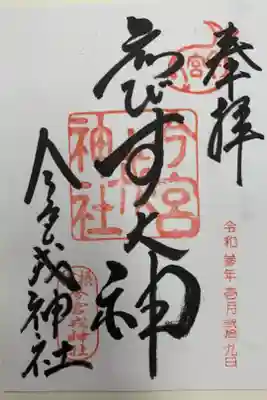 奉拝
令和参年壱月弐拾九日
ゑびす大神
今宮
戎
神社
今宮戎神社